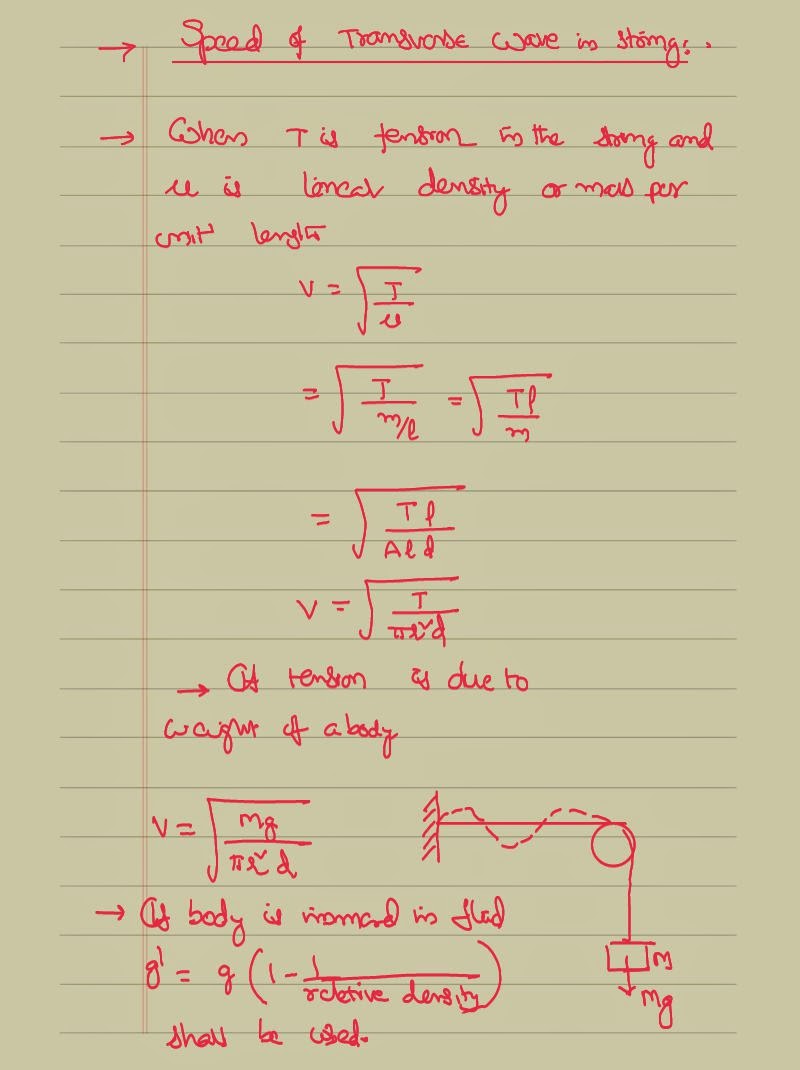 → Speed of Transverse wave in string:.
→ When T is tension in the string and
μ is linear density or mass per
unit length
V = √(T/μ)
= √(T/(m/l)) = √(Tl/m)
= √(Tl/(Ald))
V = √(T/(πr²d))
→ If tension is due to
weight of a body
V = √(Mg/(πr²d))
→ If body is immersed in fluid
g' = g (1 - 1/relative density)
shall be used.
M
Mg